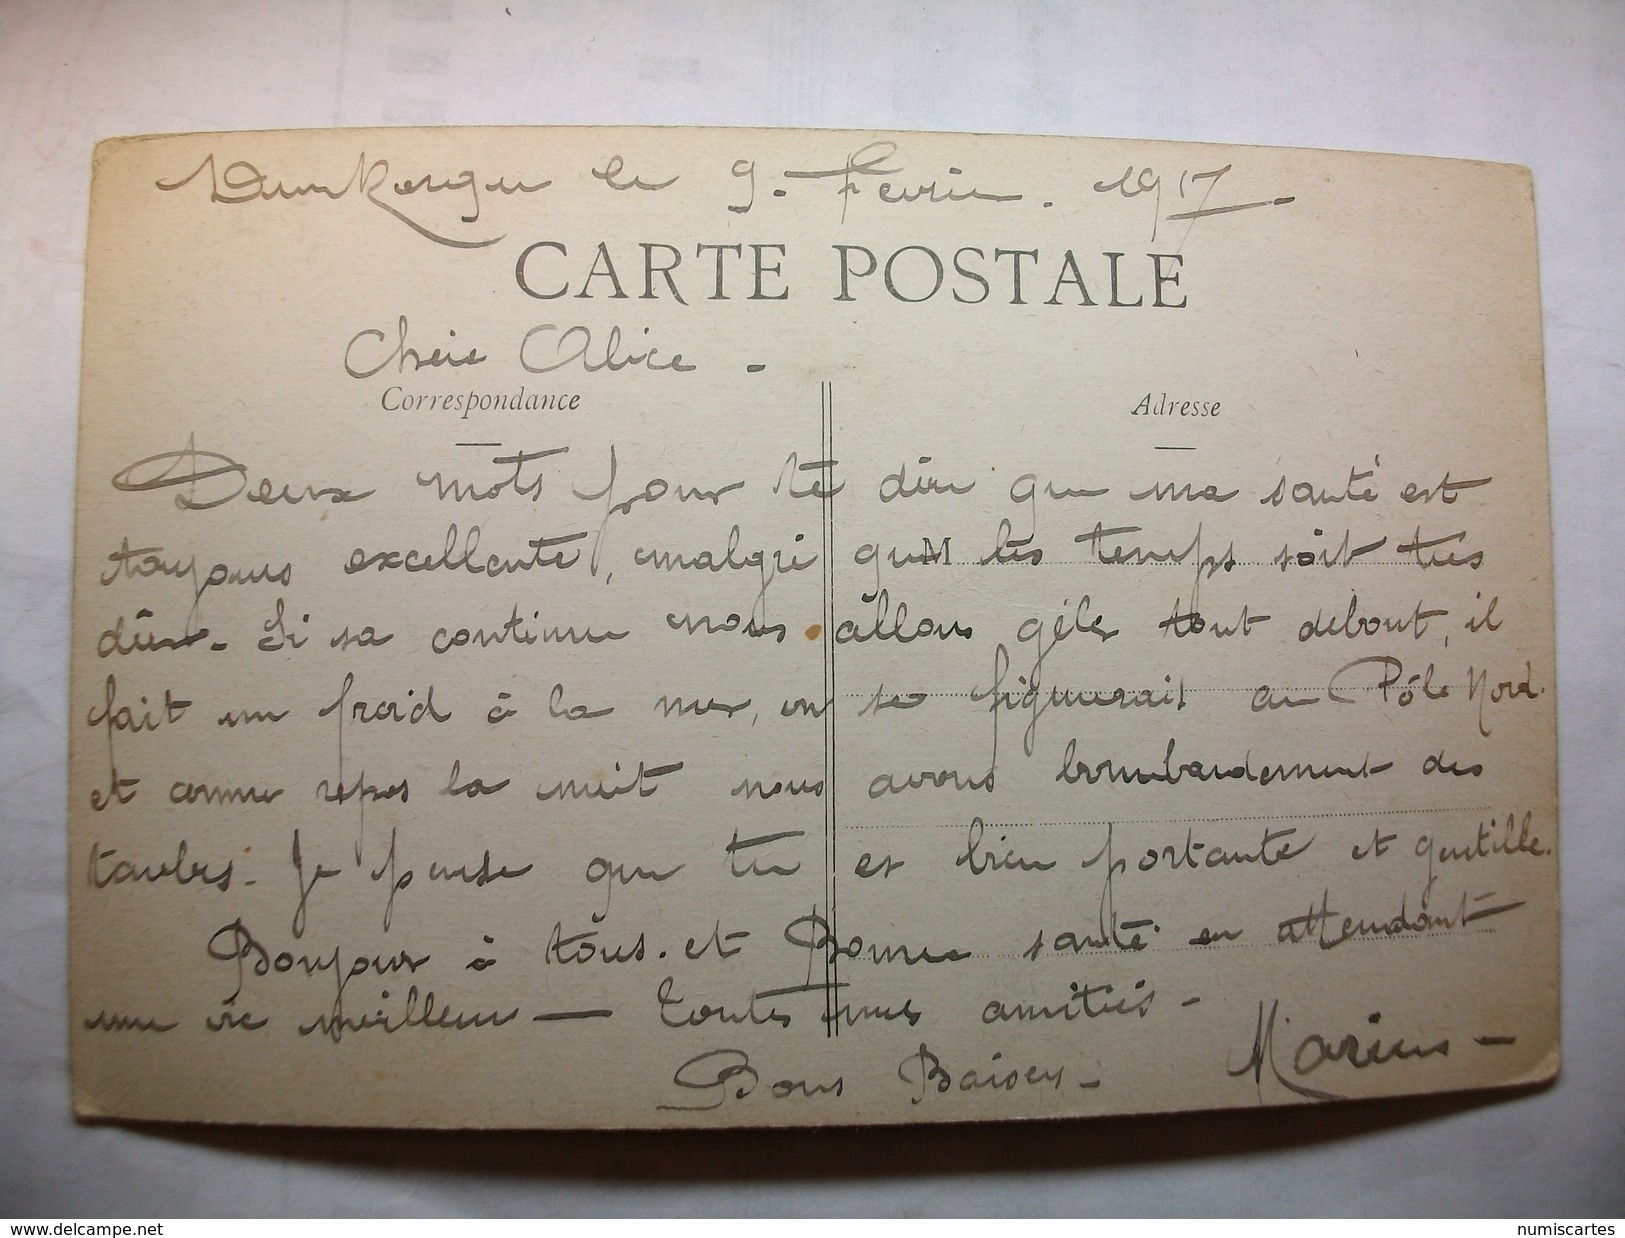 Dunkerque le 9. Fevrier. 1917.-
CARTE POSTALE
Chére Alice -
Correspondance
Adresse
Deux mots pour te dire que ma santé est
toujours excellente, malgré que les temps soit très
dûr. Si sa continue nous allons géler tout debout, il
fait un froid à la mer, on se figurerait au Pôle Nord.
et comme repos la nuit nous avons bombardement des
taubes. Je pense que tu es bien portante et gentille.
Bonjour à tous. et Bonne santé en attendant
une vie meilleur — Toutes mes amitiés -
Bons Baisers - Marius -
www.delcampe.net
numiscartes